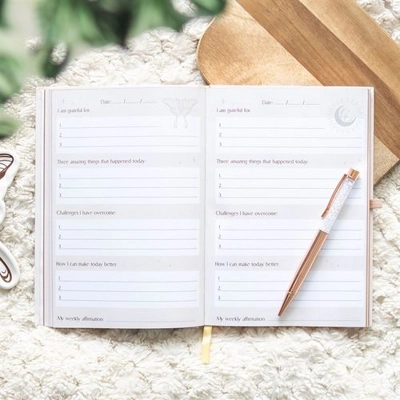 Date: __/__/__
I am grateful for:
1.
2.
3.
Three amazing things that happened today:
1.
2.
3.
Challenges I have overcome:
1.
2.
3.
How I can make today better:
1.
2.
3.
My weekly affirmation
Date: __/__/__
I am grateful for:
1.
2.
3.
Three amazing things that happened today:
1.
2.
3.
Challenges I have overcome:
1.
2.
3.
How I can make today better:
1.
2.
3.
My weekly affirmation